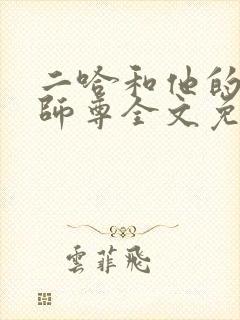 二哈和他的
師尊全文免
雲菲飛